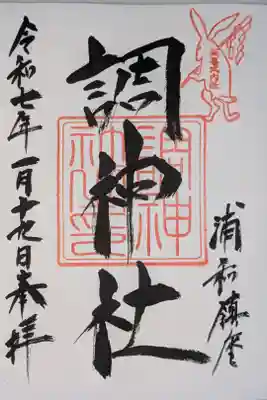 浦和鎮座
調神社
令和七年一月十九日奉拝